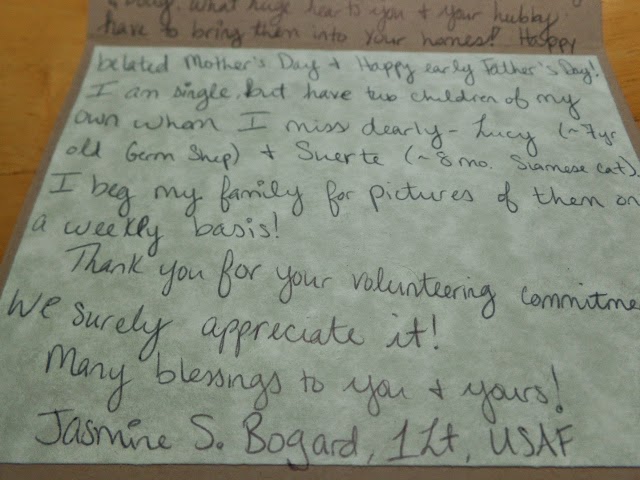 a baby. What huge hearts you & your hubby
have to bring them into your homes! Happy
belated Mother's Day & Happy early Father's Day!
I am single, but have two children of my
own whom I miss dearly - Lucy (~7yr
old Germ Shep) & Suerte (~8 mo. Siamese cat).
I beg my family for pictures of them on
a weekly basis!
Thank you for your volunteering commitme
We surely appreciate it!
Many blessings to you & yours!
Jasmine S. Bogard, 1Lt, USAF